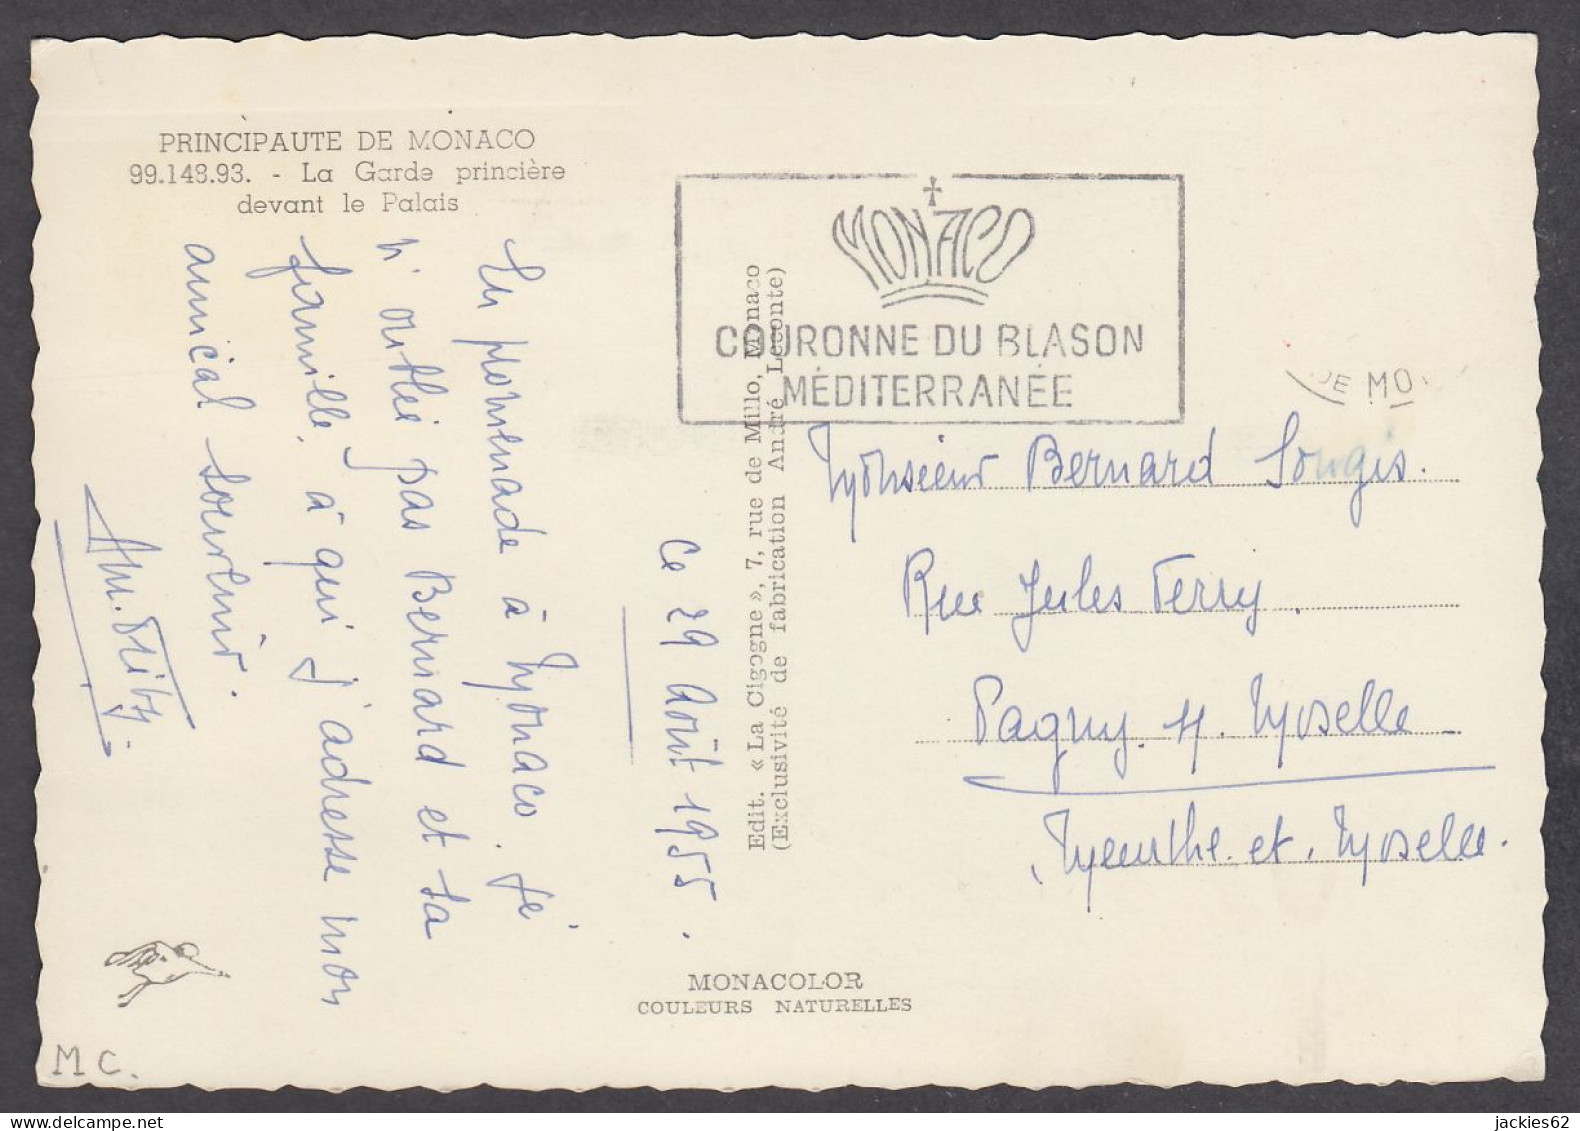 PRINCIPAUTE DE MONACO
99.148.93. - La Garde princière
devant le Palais
MONACO
COURONNE DU BLASON
MÉDITERRANÉE
DE MO
En promenade à Monaco. Je
n'oublie pas Bernard et sa
famille, à qui j'adresse mon
amical souvenir.
Ce 29 Août 1955.
Edit. « La Cigogne », 7, rue de Millo, Monaco
(Exclusivité de fabrication André Leconte)
Monsieur Bernard Songis.
Rue Jules Ferry.
Pagny. s/. Moselle
Meurthe. et. Moselle.
MONACOLOR
COULEURS NATURELLES
MC.
www.delcampe.net
jackies62